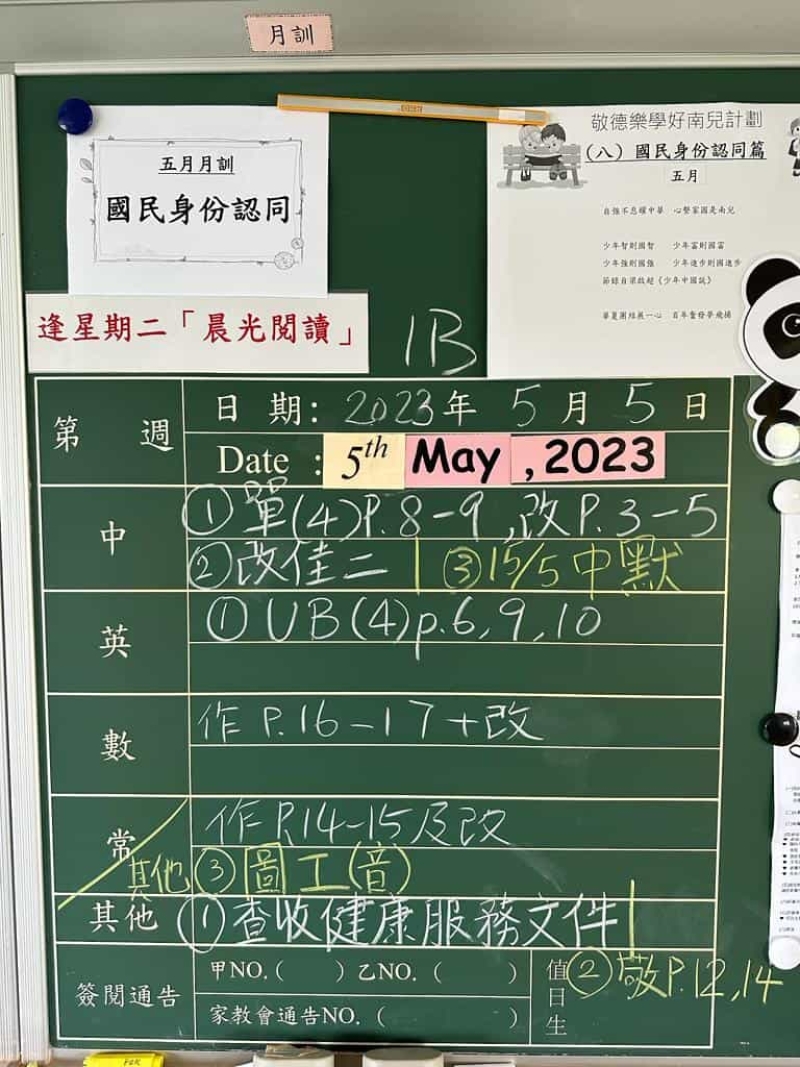 月訓
五月月訓
國民身份認同
敬德樂學好南兒計劃
(八) 國民身份認同篇
五月
自強不息耀中華 心繫家國是南兒
少年智則國智 少年富則國富
少年強則國強 少年進步則國進步
節錄自梁啟超《少年中國說》
逢星期二「晨光閱讀」
1B
第 週
日 期: 2023年 5 月 5 日
Date : 5th May , 2023
中
① 單(4)P.8-9,改P.3-5
② 改佳二 | ③ 15/5 中默
英
① UB(4)p.6,9,10
數
作 P.16-17+改
常
作P.14-15及改
其他 ③ 圖工(音)
其他
① 查收健康服務文件 |
簽閱通告
甲NO.( ) 乙NO. ( )
家教會通告NO. ( )
值日生
② 敬P.12,14